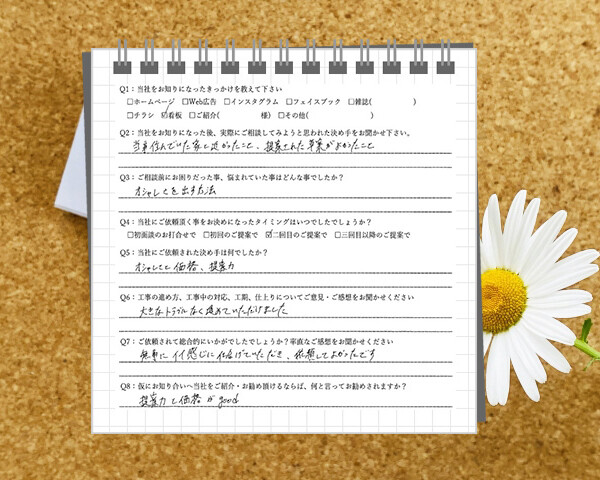 Q1：当社をお知りになったきっかけを教えて下さい
□ホームページ □Web広告 □インスタグラム □フェイスブック □雑誌( )
□チラシ ☑看板 □ご紹介( 様) □その他( )
Q2：当社をお知りになった後、実際にご相談してみようと思われた決め手をお聞かせ下さい。
当時住んでいた家と近かったこと、提案された草案がよかったこと
Q3：ご相談前にお困りだった事、悩まれていた事はどんな事でしたか？
オシャレさを出す方法
Q4：当社にご依頼頂く事をお決めになったタイミングはいつでしたでしょうか？
□初面談のお打合せで □初回のご提案で ☑二回目のご提案で □三回目以降のご提案で
Q5：当社にご依頼された決め手は何でしたか？
オシャレさと価格、提案力
Q6：工事の進め方、工事中の対応、工期、仕上りについてご意見・ご感想をお聞かせください
大きなトラブルなく進めていただけました
Q7：ご依頼されて総合的にいかがでしたでしょうか？率直なご感想をお聞かせください
見事にイイ感じに仕上げていただき、依頼してよかったです
Q8：仮にお知り合いへ当社をご紹介・お勧め頂けるならば、何と言ってお勧めされますか？
提案力と価格がgood